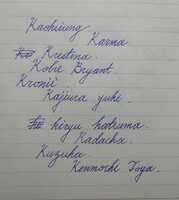 Kashiung
Karma.
Krestina.
Kobie Bryant.
Kronii
Kajiura yuki.
kiryu kodzuma.
Kadacha.
Kuzuha.
Kenmochi Toya.